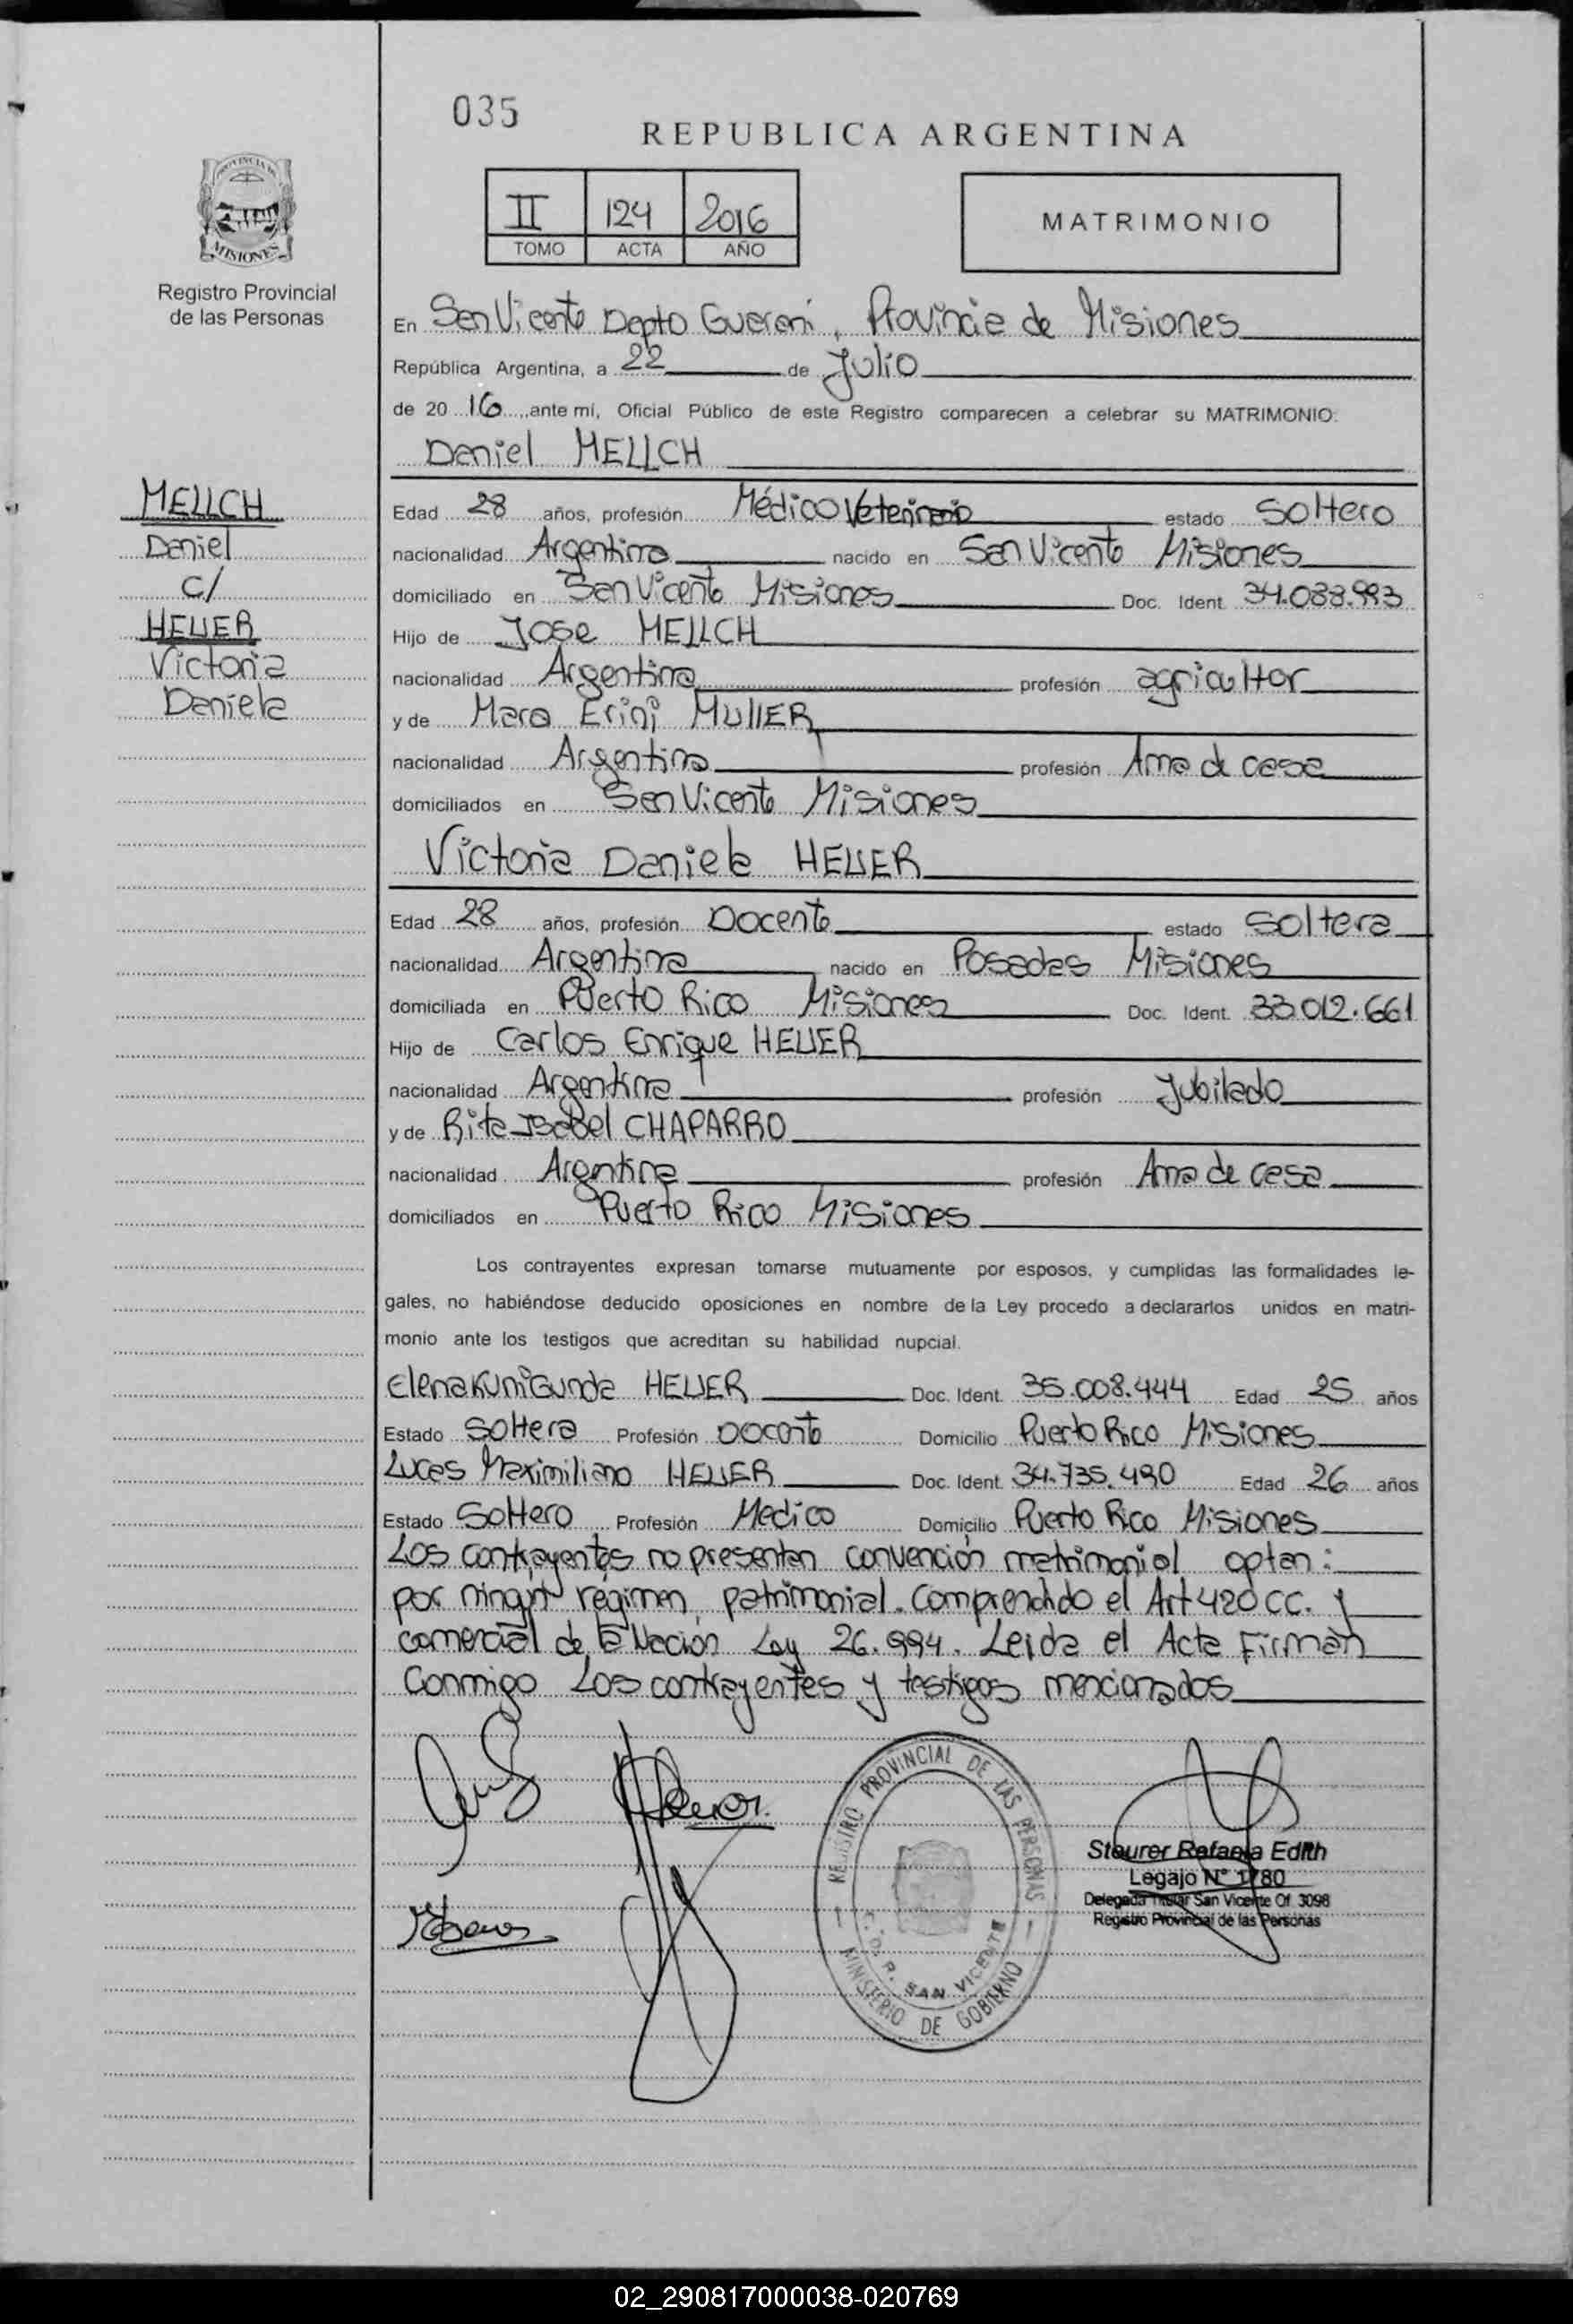 035
REPUBLICA ARGENTINA
II 124 2016
TOMO ACTA AÑO
MATRIMONIO
PROVINCIA DE
MISIONES
Registro Provincial
de las Personas
En San Vicente Depto Guarani, Provincia de Misiones
República Argentina, a 22 de Julio
de 20 16 ,ante mí, Oficial Público de este Registro comparecen a celebrar su MATRIMONIO:
Daniel
Daniel
C/
HELLER
Victoria
Daniela
Edad 28 años, profesión Médico Veterinario estado Soltero
nacionalidad Argentina nacido en San Vicente Misiones
domiciliado en San Vicente Misiones Doc. Ident.
Hijo de Jose
nacionalidad Argentina profesión agricultor
y de MULLER
nacionalidad Argentina profesión Ama de casa
domiciliados en San Vicente Misiones
Victoria Daniela HELLER
Edad 28 años, profesión Docente estado Soltera
nacionalidad Argentina nacido en Posadas Misiones
domiciliada en Puerto Rico Misiones Doc. Ident. 33.012.661
Hijo de Carlos Enrique HELLER
nacionalidad Argentina profesión Jubilado
y de Rita Isabel CHAPARRO
nacionalidad Argentina profesión Ama de casa
domiciliados en Puerto Rico Misiones
Los contrayentes expresan tomarse mutuamente por esposos, y cumplidas las formalidades le-
gales, no habiéndose deducido oposiciones en nombre de la Ley procedo a declararlos unidos en matri-
monio ante los testigos que acreditan su habilidad nupcial.
Elena Kunigunda HELLER Doc. Ident. 35.008.444 Edad 25 años
Estado Soltera Profesión Docente Domicilio Puerto Rico Misiones
Lucas Maximiliano HELLER Doc. Ident. 34.735.490 Edad 26 años
Estado Soltero Profesión Medico Domicilio Puerto Rico Misiones
Los contrayentes no presentan convención matrimonial optan:
por ningún régimen patrimonial. Comprendido el Art 420 CC. y
comercial de la Nación Ley 26.994. Leida el Acta Firman
Conmigo Los contrayentes y testigos mencionados
REGISTRO PROVINCIAL DE LAS PERSONAS
SAN VICENTE
MINISTERIO DE GOBIERNO
Steurer Rafaela Edith
Legajo N° 1780
Delegada Titular San Vicente Of. 3098
Registro Provincial de las Personas
02_290817000038-020769